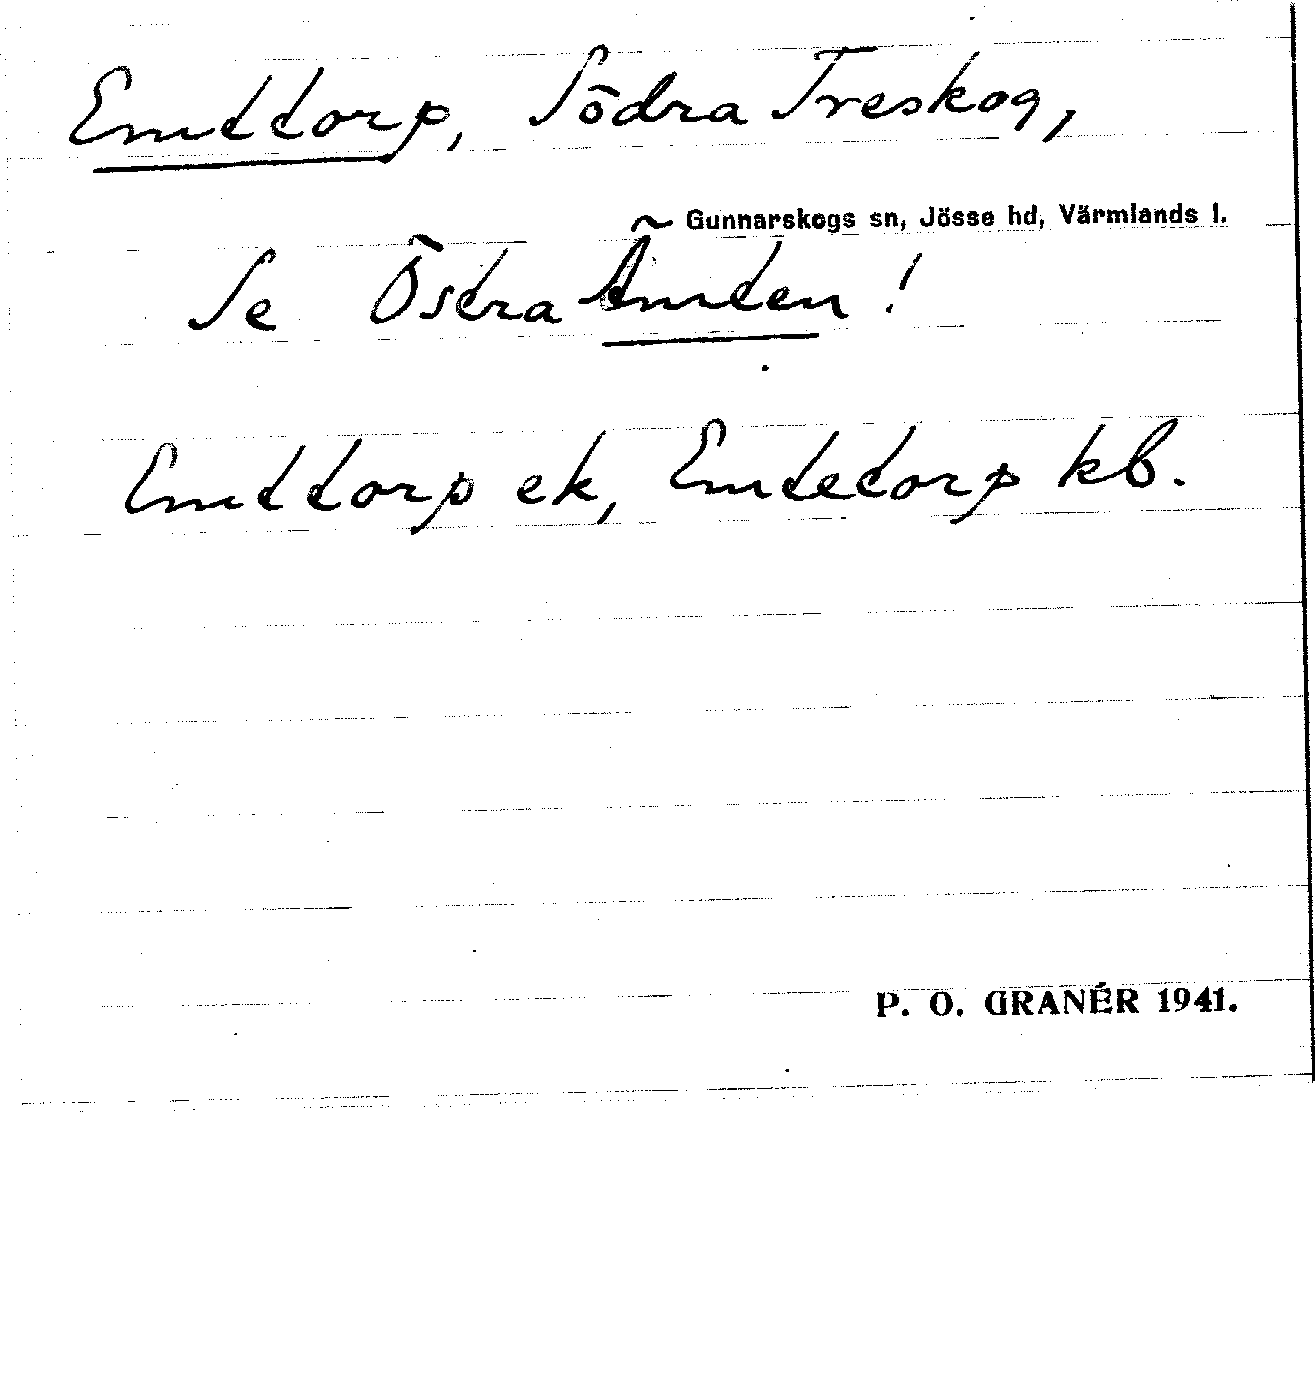 Emttorp, Södra Treskog,
Gunnarskogs sn, Jösse hd, Värmlands l.
Se Östra Ämten!
Emttorp ek, Emtetorp kb.
P. O. GRANÉR 1941.